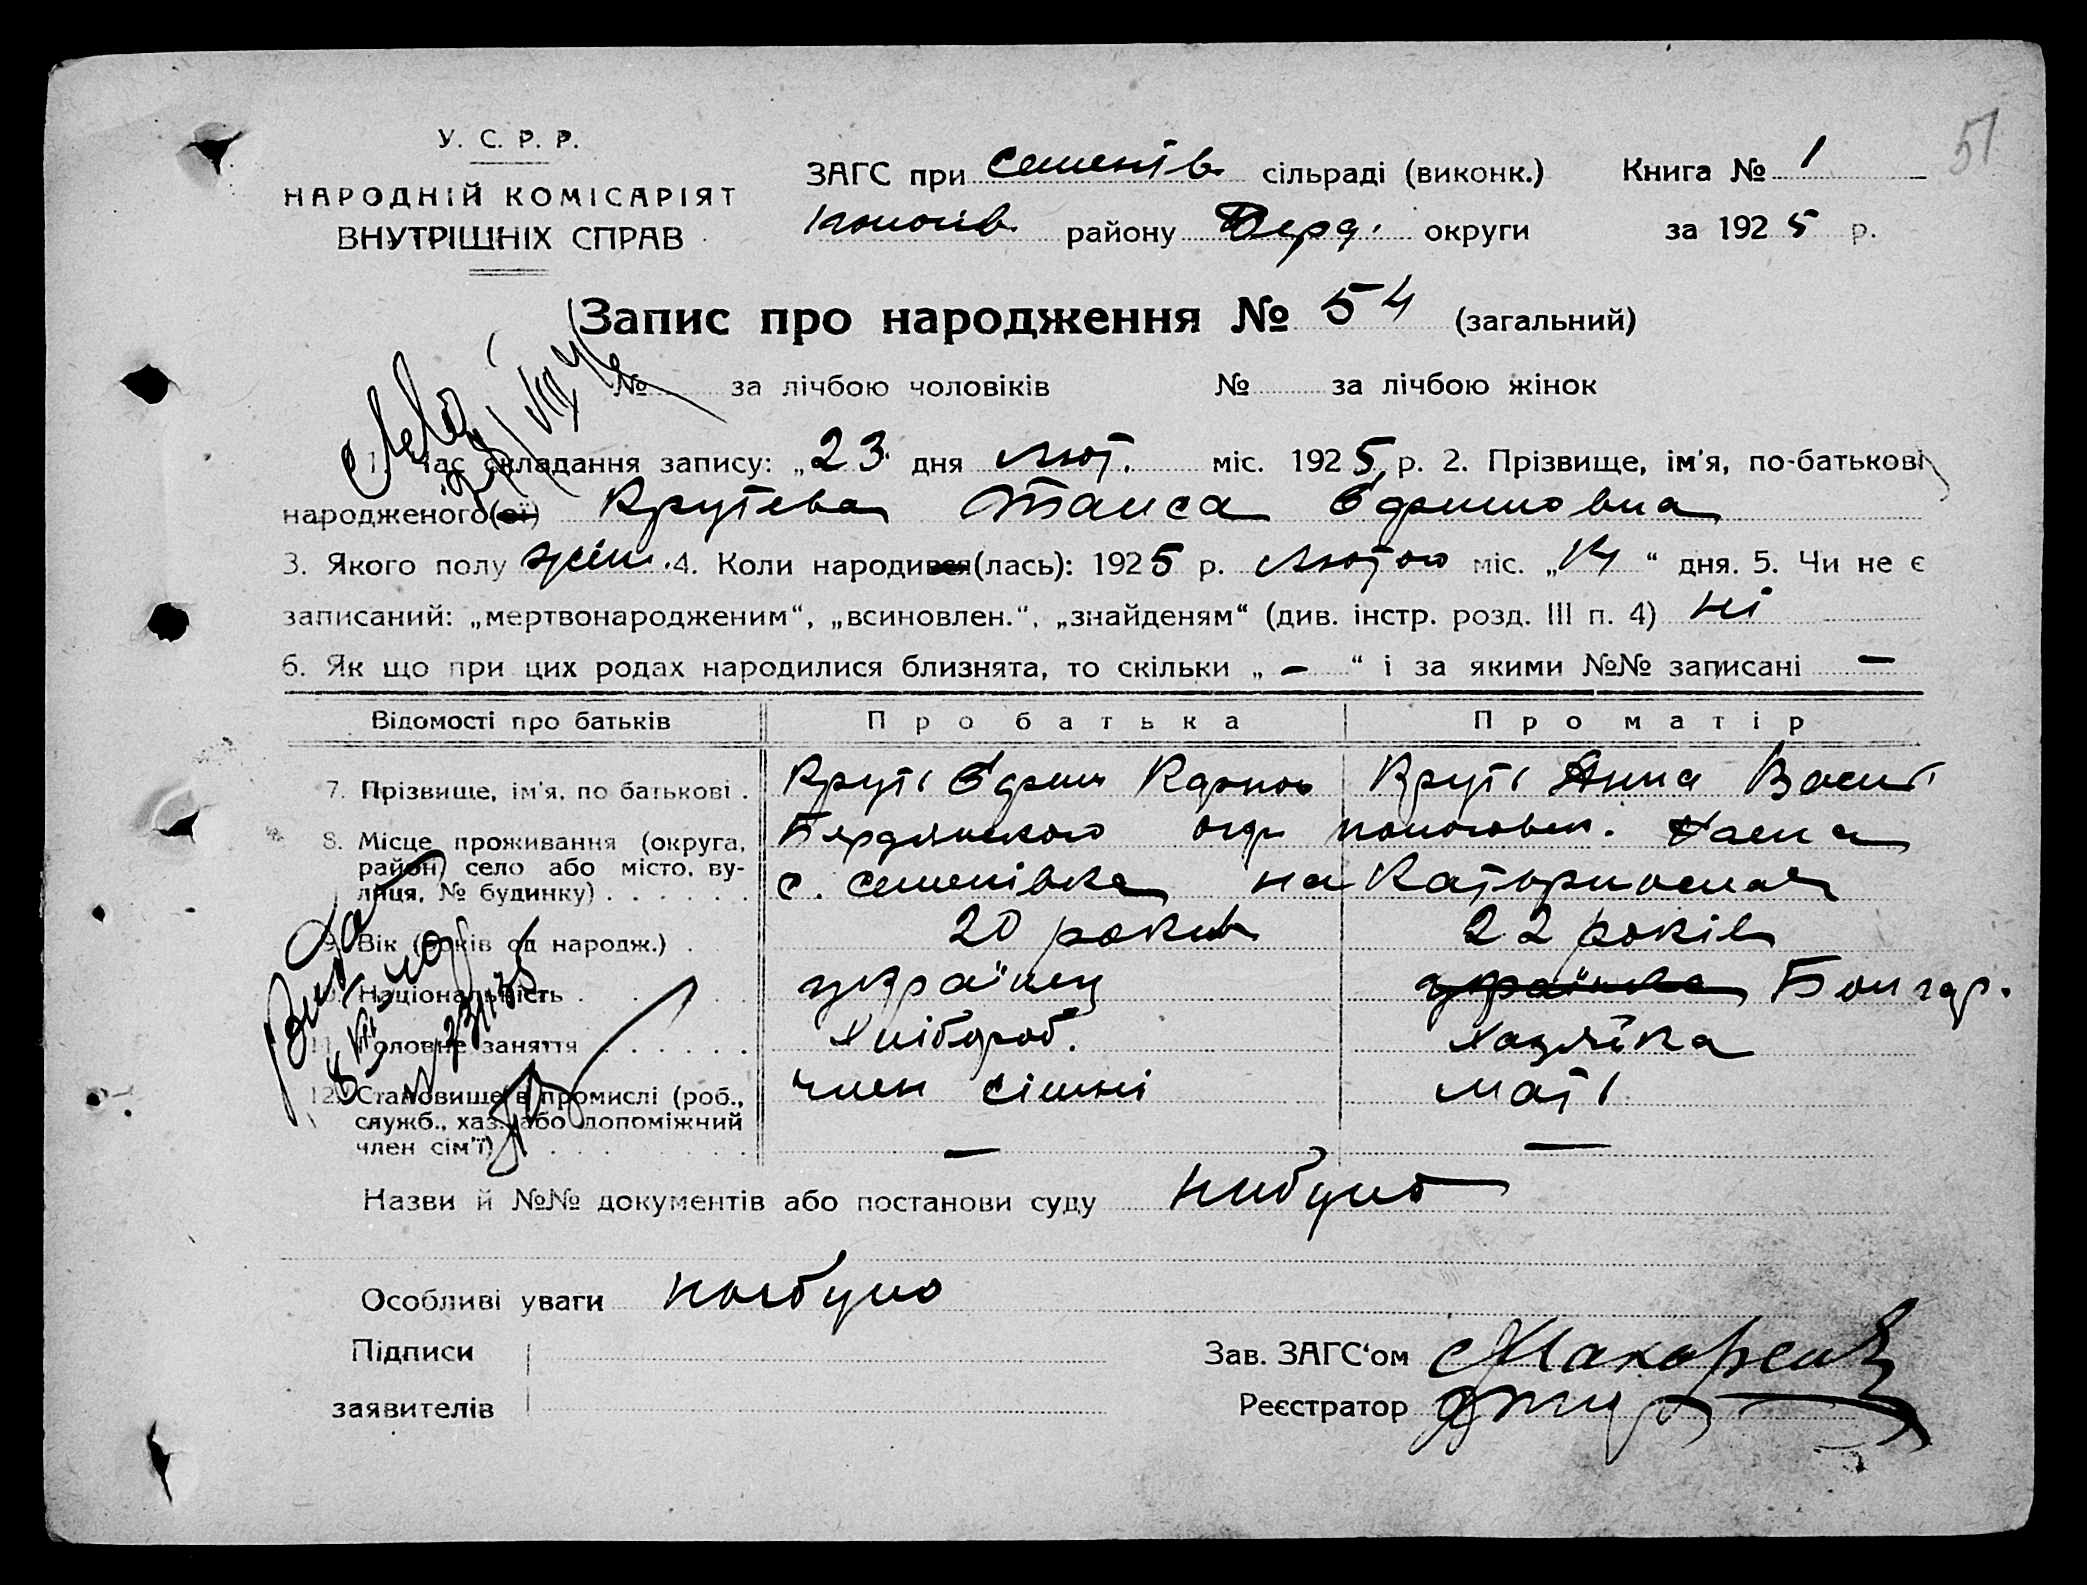 51
У. С. Р. Р.
НАРОДНІЙ КОМІСАРІЯТ
ВНУТРІШНІХ СПРАВ
ЗАГС при Семенів. сільраді (виконк.) Книга № 1
району Берд. округи за 1925 р.
Запис про народження № 54 (загальний)
№ за лічбою чоловіків № за лічбою жінок
1. Час складання запису: „23" дня лют. міс. 1925 р. 2. Прізвище, ім'я, по-батькові
народженого(ої) Крутева Таиса
3. Якого полу жін. 4. Коли народився(лась): 1925 р. лютого міс. „14“ дня. 5. Чи не є
записаний: „мертвонародженим“, „всиновлен.“, „знайденям“ (див. інстр. розд. III п. 4) ні
6. Як що при цих родах народилися близнята, то скільки „ - “ і за якими №№ записані -
Відомості про батьків Про батька Про матір
7. Прізвище, ім'я, по батькові . Круть Карпов Круть Анна Васил
8. Місце проживання (округа, Бердянского окр
район) село або місто, ву-
лиця, № будинку) . . . . . . с. Семенівка на
9. Вік (років од народж.) . 20 років 22 років
10. Національність . . . . . . українец українка Болгар.
11. Головне заняття . . . . . . Хлібороб. Хазяйка
12. Становище в промислі (роб., член сімьі мать
служб., хаз. або допоміжний
член сім'ї) . . . . . . — —
Назви й №№ документів або постанови суду небуло
Особливі уваги небуло
Підписи
заявителів
Зав. ЗАГС'ом
Реєстратор